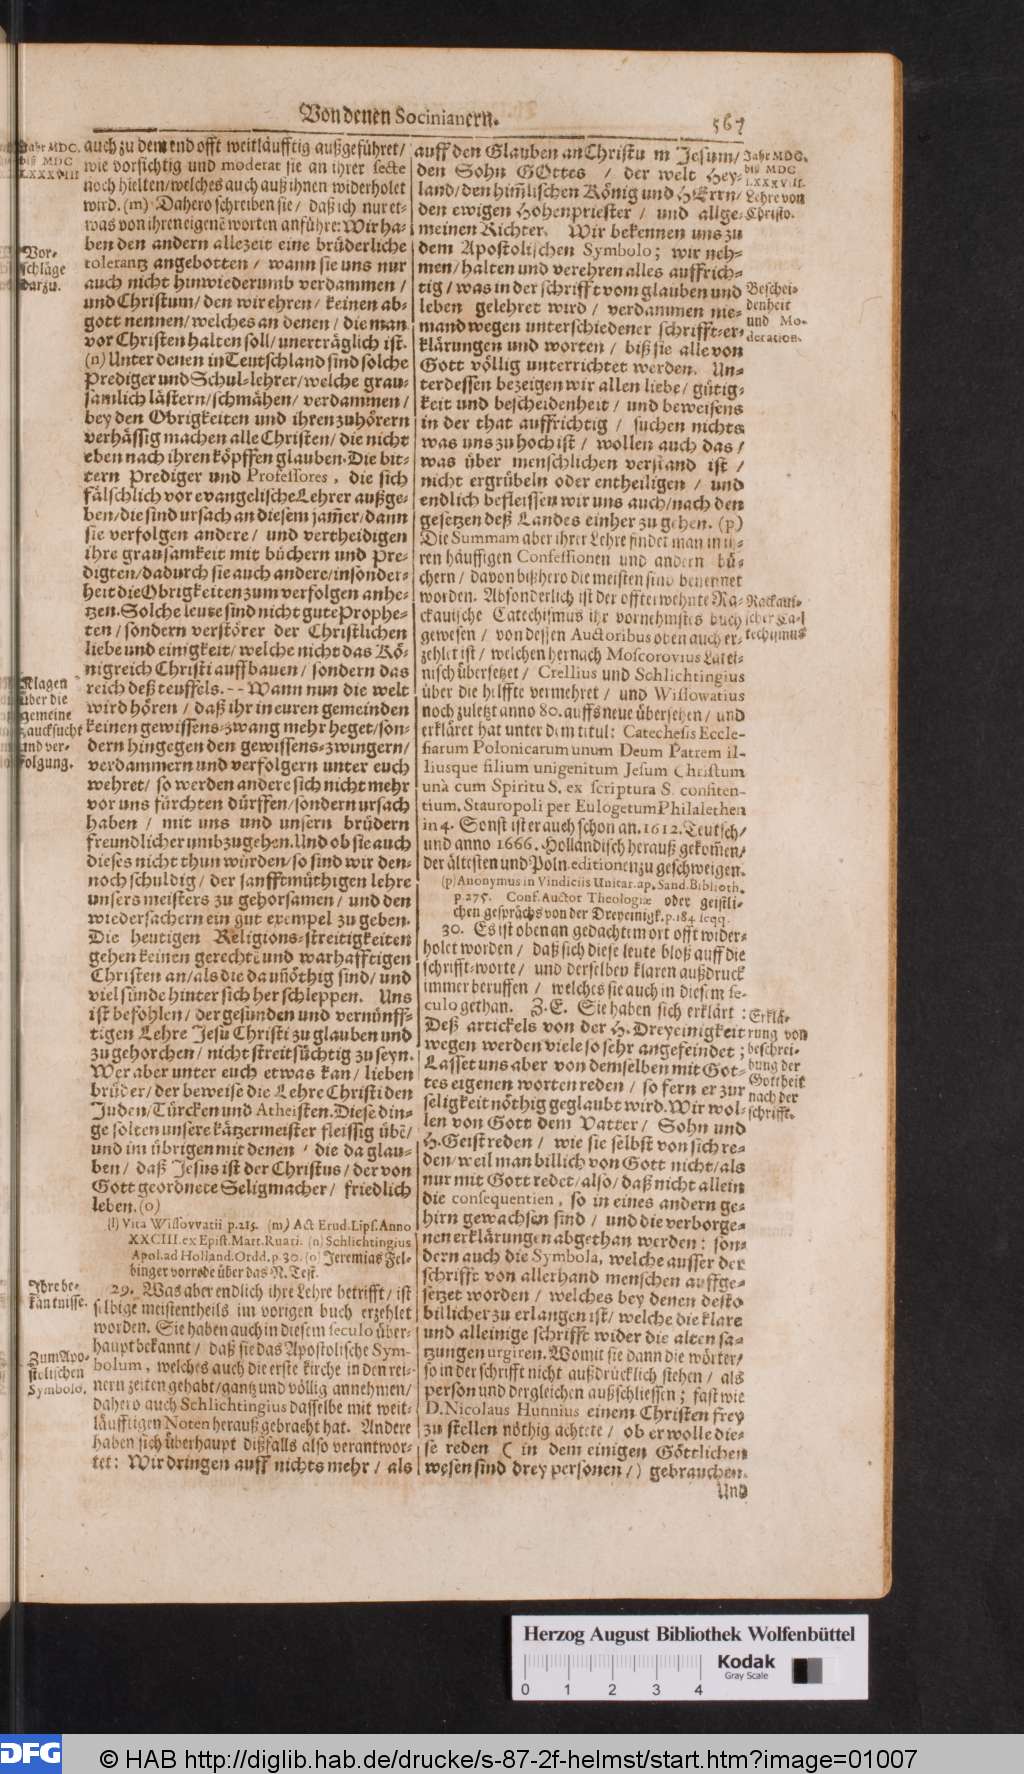 Von denen Socinianern.
567
Jahr MDC.
biß MDC
LXXXVIII
auch zu dem end offt weitläufftig außgeführet/
wie vorsichtig und moderat sie an ihrer secte
noch hielten/welches auch auß ihnen widerholet
wird. (m) Dahero schreiben sie/ daß ich nur et-
was von ihren eigenē worten anführe: Wir ha-
ben den andern allezeit eine brüderliche
tolerantz angebotten/ wann sie uns nur
auch nicht hinwiederumb verdammen/
und Christum/den wir ehren/ keinen ab-
gott nennen/welches an denen/ die man
vor Christen halten soll/unerträglich ist.
(n) Unter denen in Teutschland sind solche
Prediger und Schul-lehrer/welche grau-
samlich lästern/schmähen/ verdammen/
bey den Obrigkeiten und ihren zuhörern
verhässig machen alle Christen/ die nicht
eben nach ihren köpffen glauben. Die bit-
tern Prediger und Professores, die sich
fälschlich vor evangelische Lehrer außge-
ben/die sind ursach an diesem jam̄er/dann
sie verfolgen andere/ und vertheidigen
ihre grausamkeit mit büchern und Pre-
digten/dadurch sie auch andere/insonder-
heit die Obrigkeiten zum verfolgen anhe-
tzen. Solche leute sind nicht gute Prophe-
ten/ sondern verstörer der Christlichen
liebe und einigkeit/ welche nicht das Kö-
nigreich Christi auffbauen/ sondern das
reich deß teuffels. -- Wann nun die welt
wird hören/ daß ihr in euren gemeinden
keinen gewissens-zwang mehr heget/son-
dern hingegen den gewissens-zwingern/
verdammern und verfolgern unter euch
wehret/ so werden andere sich nicht mehr
vor uns fürchten dürffen/sondern ursach
haben/ mit uns und unsern brüdern
freundlicher umbzugehen. Und ob sie auch
dieses nicht thun würden/so sind wir den-
noch schuldig/ der sanfftmüthigen lehre
unsers meisters zu gehorsamen/ und den
wiedersachern ein gut exempel zu geben.
Die heutigen Religions-streitigkeiten
gehen keinen gerechtē und warhafftigen
Christen an/als die da uñöthig sind/ und
viel sünde hinter sich her schleppen. Uns
ist befohlen/ der gesunden und vernünff-
tigen Lehre Jesu Christi zu glauben und
zu gehorchen/ nicht streitsüchtig zu seyn.
Wer aber unter euch etwas kan/ lieben
brüder/der beweise die Lehre Christi den
Juden/Türcken und Atheisten. Diese din-
ge solten unsere kätzermeister fleissig übē/
und im übrigen mit denen/ die da glau-
ben/ daß Jesus ist der Christus/ der von
Gott geordnete Seligmacher/ friedlich
leben. (o)
(l) Vita Wissovvatii p.215. (m) Act Erud.Lips.Anno
XXCIII. ex Epist. Mart. Ruari. (n) Schlichtingius
Apol. ad Holland. Ordd. p. 30. (o) Jeremias Fel-
binger vorrede über das N. Test.
29. Was aber endlich ihre Lehre betrifft/ ist
selbige meistentheils im vorigen buch erzehlet
worden. Sie haben auch in diesem seculo über-
haupt bekannt/ daß sie das Apostolische Sym-
bolum, welches auch die erste kirche in den rei-
nern zeiten gehabt/gantz und völlig annehmen/
dahero auch Schlichtingius dasselbe mit weit-
läufftigen Noten herauß gebracht hat. Andere
haben sich überhaupt dißfalls also verantwor-
tet: Wir dringen auff nichts mehr/ als
Vor-
schläge
darzu.
Klagen
über die
gemeine
zancksucht
und ver-
folgung.
Ihre be-
käntnisse.
Zum Apo-
stolischen
Symbolo.
auff den Glauben an Christum Jesum/
den Sohn GOttes/ der welt Hey-
land/den him̄lischen König und HErrn/
den ewigen Hohenpriester/ und allge-
meinen Richter. Wir bekennen uns zu
dem Apostolischen Symbolo; wir neh-
men/halten und verehren alles auffrich-
tig/ was in der schrifft vom glauben und
leben gelehret wird/ verdammen nie-
mand wegen unterschiedener schrifft-er-
klärungen und worten/ biß sie alle von
Gott völlig unterrichtet werden. Un-
terdessen bezeigen wir allen liebe/ gütig-
keit und bescheidenheit/ und beweisens
in der that auffrichtig/ suchen nichts
was uns zu hoch ist/ wollen auch das/
was über menschlichen verstand ist/
nicht ergrübeln oder entheiligen/ und
endlich befleissen wir uns auch/nach den
gesetzen deß Landes einher zu gehen. (p)
Die Summam aber ihrer Lehre findet man in ih-
ren häuffigen Confessionen und andern bü-
chern/ davon bißhero die meisten sind benennet
worden. Absonderlich ist der offterwehnte Ra-
ckauische Catechismus ihr vornehmstes buch
gewesen/ von dessen Auctoribus oben auch er-
zehlet ist/ welchen hernach Moscorovius Latei-
nisch übersetzet/ Crellius und Schlichtingius
über die helffte vermehret/ und Wissowatius
noch zuletzt anno 80. auffs neue übersehen/ und
erkläret hat unter dem titul: Catechesis Eccle-
siarum Polonicarum unum Deum Patrem il-
liusque filium unigenitum Jesum Christum
unà cum Spiritu S. ex scriptura S. confiten-
tium. Stauropoli per Eulogetum Philalethen
in 4. Sonst ist er auch schon an. 1612. Teutsch/
und anno 1666. Holländisch herauß gekom̄en/
der ältesten und Poln. editionen zu geschweigen.
(p) Anonymus in Vindiciis Unitar. ap. Sand. Biblioth.
p. 275. Conf. Auctor Theologiæ oder geistli-
chen gesprächs von der Dreyeinigk. p. 184 seqq.
30. Es ist oben an gedachtem ort offt wider-
holet worden/ daß sich diese leute bloß auff die
schrifft-worte/ und derselben klaren außdruck
immer beruffen/ welches sie auch in diesem se-
culo gethan. Z. E. Sie haben sich erklärt:
Deß artickels von der H. Dreyeinigkeit
wegen werden viele so sehr angefeindet;
Lasset uns aber von demselben mit Got-
tes eigenen worten reden/ so fern er zur
seligkeit nöthig geglaubt wird. Wir wol-
len von Gott dem Vatter/ Sohn und
H. Geist reden/ wie sie selbst von sich re-
den/weil man billich von Gott nicht/als
nur mit Gott redet/also/ daß nicht allein
die consequentien, so in eines andern ge-
hirn gewachsen sind/ und die verborge-
nen erklärungen abgethan werden: son-
dern auch die Symbola, welche ausser der
schrifft von allerhand menschen auffge-
setzet worden/ welches bey denen desto
billicher zu erlangen ist/ welche die klare
und alleinige schrifft wider die alten sa-
tzungen urgiren. Womit sie dann die wörter/
so in der schrifft nicht außdrücklich stehen/ als
person und dergleichen außschliessen; fast wie
D. Nicolaus Hunnius einem Christen frey
zu stellen nöthig achtete/ ob er wolle die-
se reden ( in dem einigen Göttlichen
wesen sind drey personen/) gebrauchen.
Und
Jahr MDC.
biß MDC
LXXXVIII.
Lehre von
Christo.
Beschei-
denheit
und Mo-
deration.
Rackaui-
scher Ca-
techismus
Erklä-
rung von
beschrei-
bung der
Gottheit
nach der
schrifft.
Herzog August Bibliothek Wolfenbüttel
Kodak
Gray Scale
0 1 2 3 4
DFG
© HAB http://diglib.hab.de/drucke/s-87-2f-helmst/start.htm?image=01007